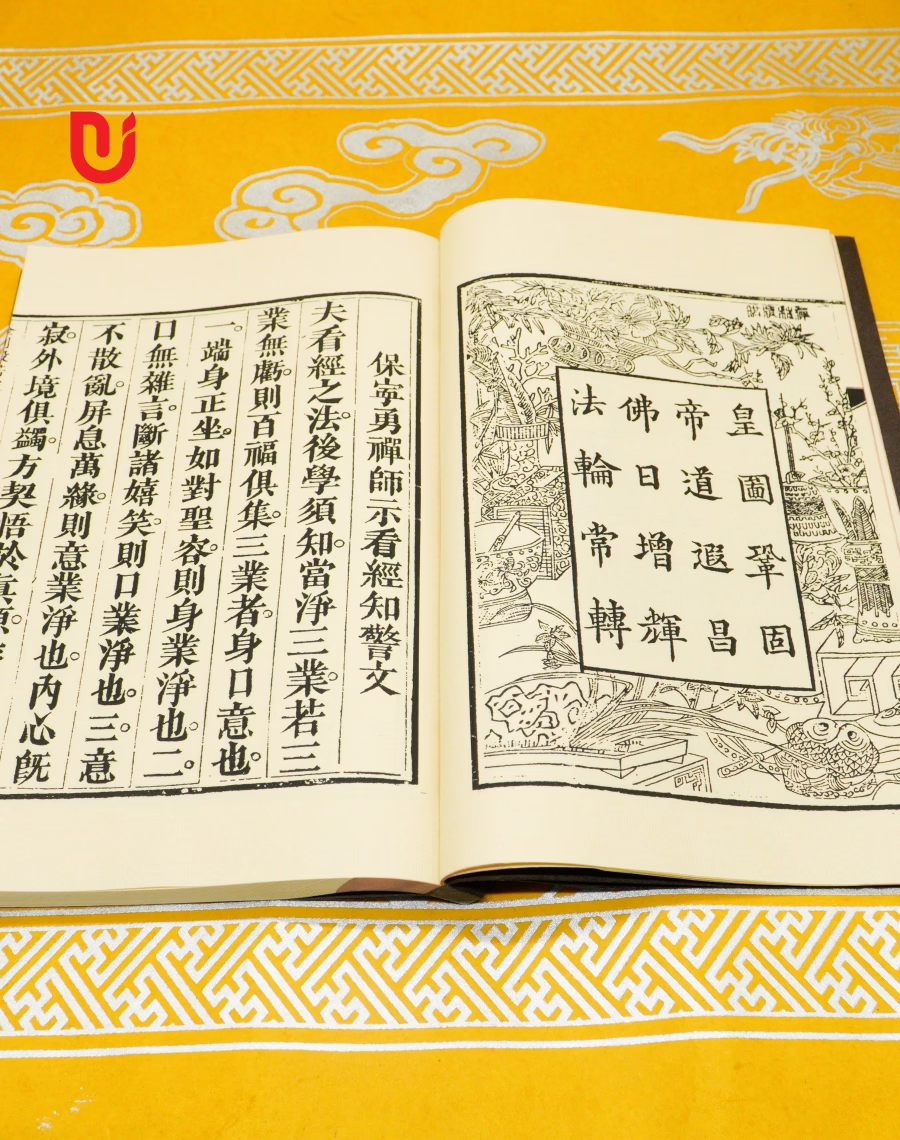 皇圖鞏固
帝道遐昌
佛日增輝
法輪常轉
保寧勇禪師示看經知警文
夫看經之法。後學須知。當淨三業。若三
業無虧。則百福俱集。三業者。身口意也。
一。端身正坐。如對聖容。則身業淨也。二。
口無雜言。斷諸嬉笑。則口業淨也。三。意
不散亂。屏息萬緣。則意業淨也。內心旣
寂。外境俱蠲。方契悟於真源。